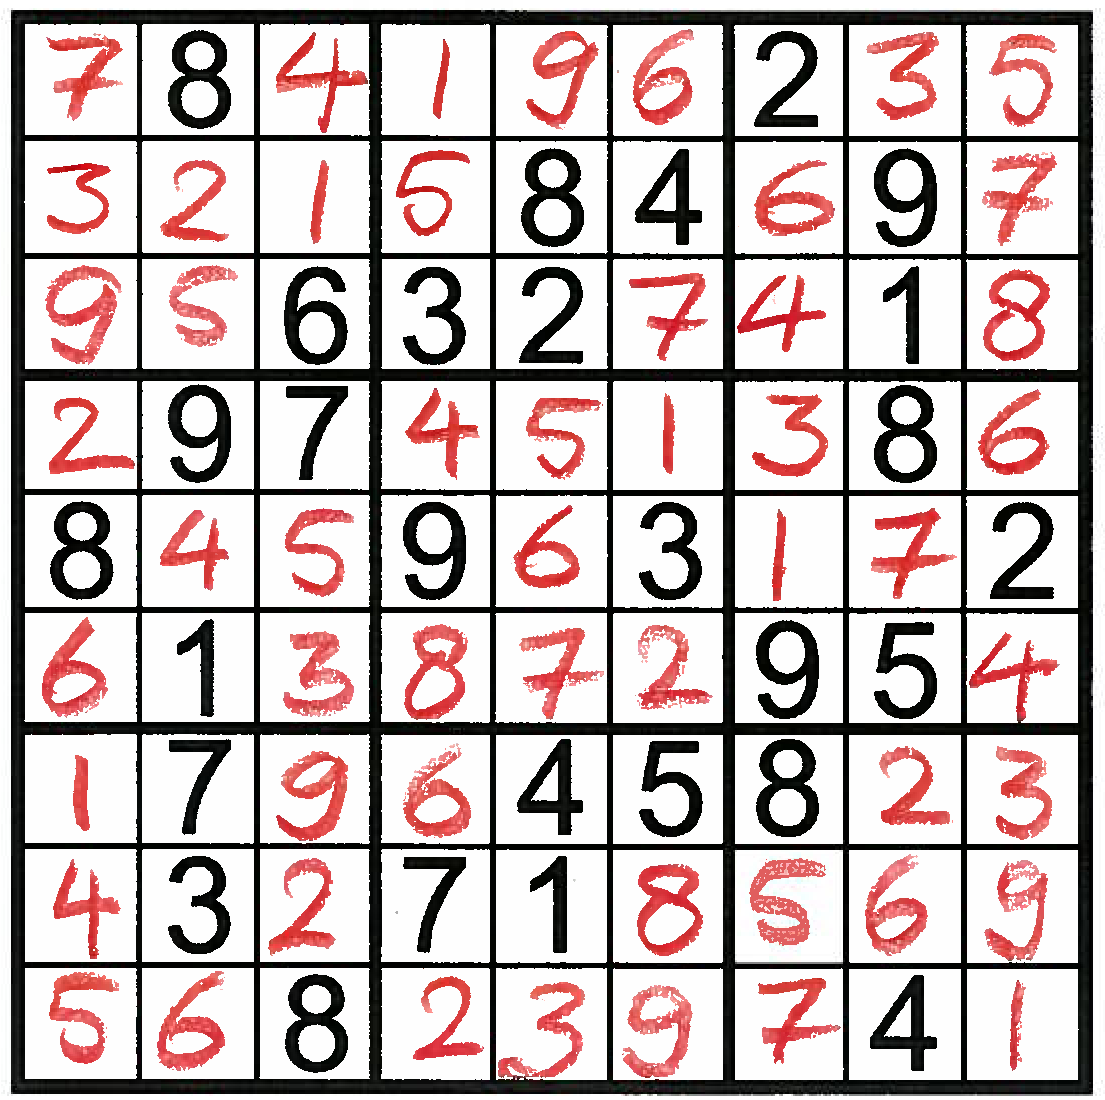 7 8 4 1 9 6 2 3 5
3 2 1 5 8 4 6 9 7
9 5 6 3 2 7 4 1 8
2 9 7 4 5 1 3 8 6
8 4 5 9 6 3 1 7 2
6 1 3 8 7 2 9 5 4
1 7 9 6 4 5 8 2 3
4 3 2 7 1 8 5 6 9
5 6 8 2 3 9 7 4 1